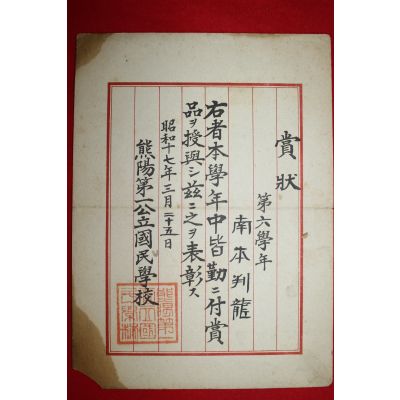 賞狀
第六學年
南本判龍
右者本學年中皆勤ニ付賞
品ヲ授與シ玆ニ之ヲ表彰ス
昭和十七年三月二十五日
熊陽第一公立國民學校